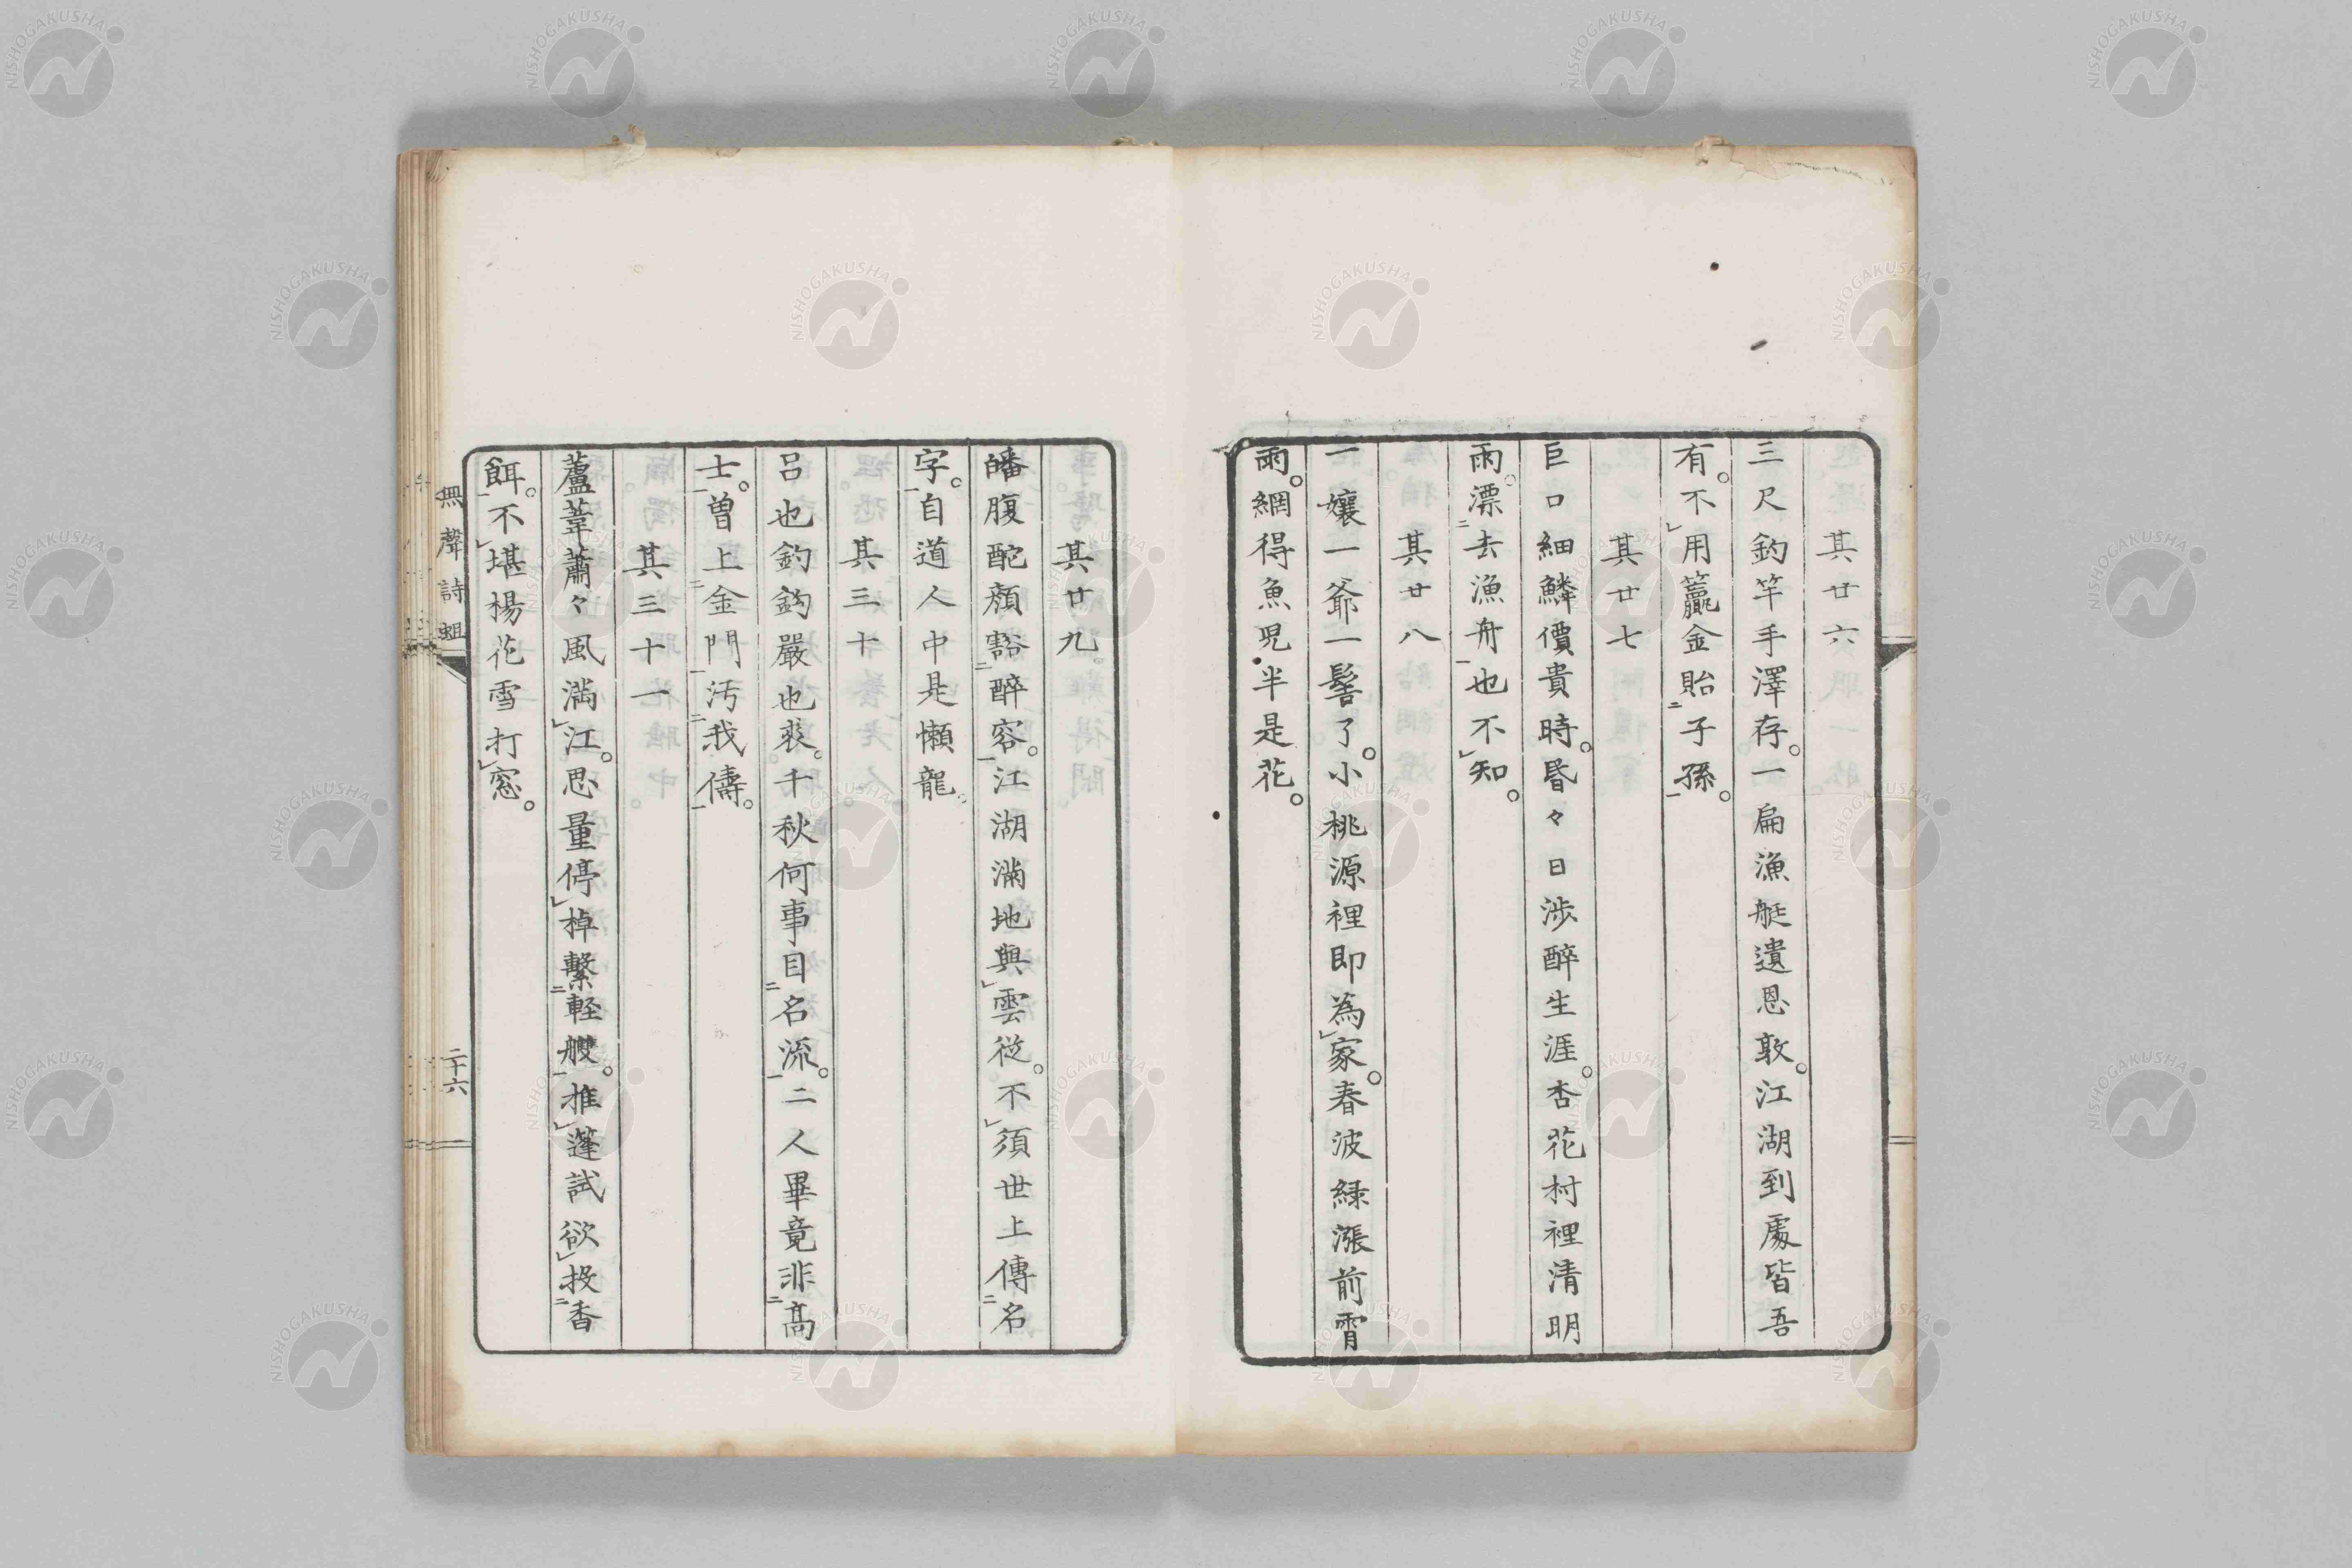 其廿六
三尺釣竿手澤存。一扁漁艇遺恩敦。江湖到處皆吾
有。不用籯金貽子孫。
其廿七
巨口細鱗價貴時。昏々日涉醉生涯。杏花村裡清明
雨。漂去漁舟也不知。
其廿八
一孃一爺一髻了。小桃源裡即為家。春波緑漲前宵
雨。網得魚児半是花。
其廿九
皤腹酡顏豁醉容。江湖滿地與雲從。不須世上傳名
字。自道人中是懶龍。
其三十
呂也釣鈎嚴也裘。千秋何事目名流。二人畢竟非高
士。曽上金門汚我儔。
其三十一
蘆葦蕭々風滿江。思量停棹繫軽艭。推蓬試欲投香
餌。不堪楊花雪打窓。
無聲詩
二十六
NISHOGAKUSHA